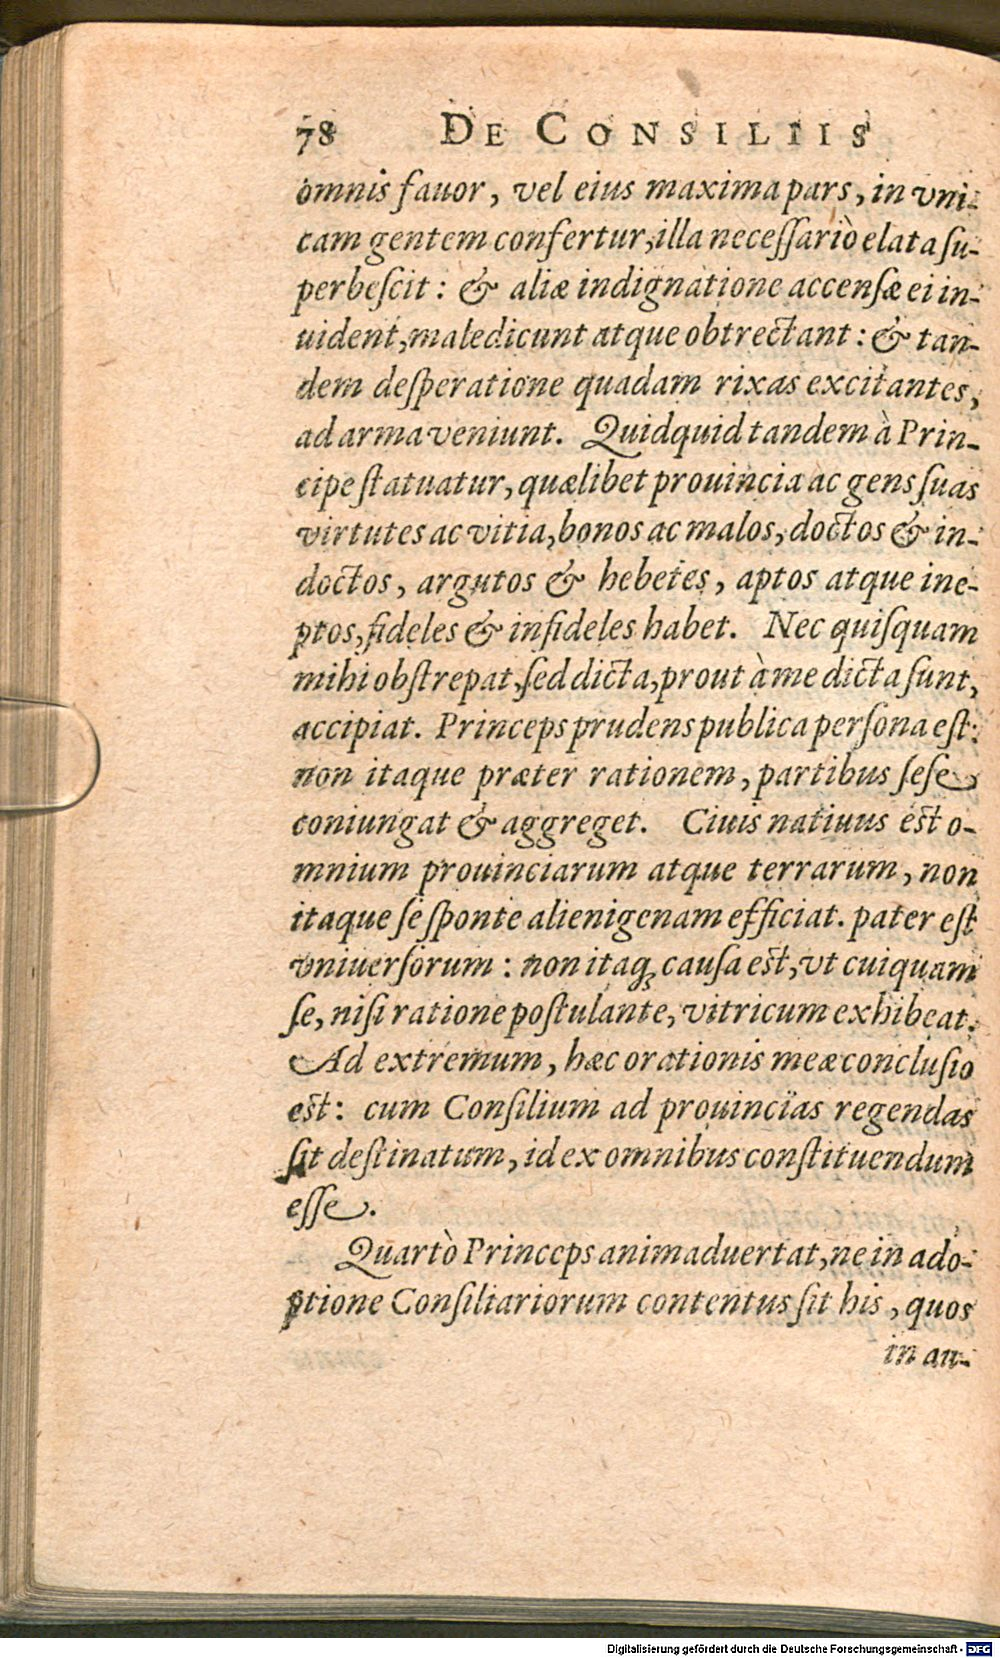 78 DE CONSILIIS
omnis fauor, vel eius maxima pars, in vni-
cam gentem confertur, illa neceſſariò elata ſu-
perbeſcit: & aliæ indignatione accenſæ ei in-
uident, maledicunt atque obtrectant: & tan-
dem deſperatione quadam rixas excitantes,
ad arma veniunt. Quidquid tandem à Prin-
cipe ſtatuatur, quælibet prouincia ac gens ſuas
virtutes ac vitia, bonos ac malos, doctos & in-
doctos, argutos & hebetes, aptos atque ine-
ptos, fideles & infideles habet. Nec quiſquam
mihi obſtrepat, ſed dicta, prout à me dicta ſunt,
accipiat. Princeps prudens publica perſona eſt:
non itaque præter rationem, partibus ſeſe
coniungat & aggreget. Ciuis natiuus eſt o-
mnium prouinciarum atque terrarum, non
itaque ſe ſponte alienigenam efficiat. pater eſt
vniuerſorum: non itaq; cauſa eſt, vt cuiquam
ſe, niſi ratione poſtulante, vitricum exhibeat.
Ad extremum, hæc orationis meæ concluſio
eſt: cum Conſilium ad prouincias regendas
ſit deſtinatum, id ex omnibus conſtituendum
eſſe.
Quartò Princeps animaduertat, ne in ado-
ptione Conſiliariorum contentus ſit his, quos
in au-
Digitalisierung gefördert durch die Deutsche Forschungsgemeinschaft - DFG